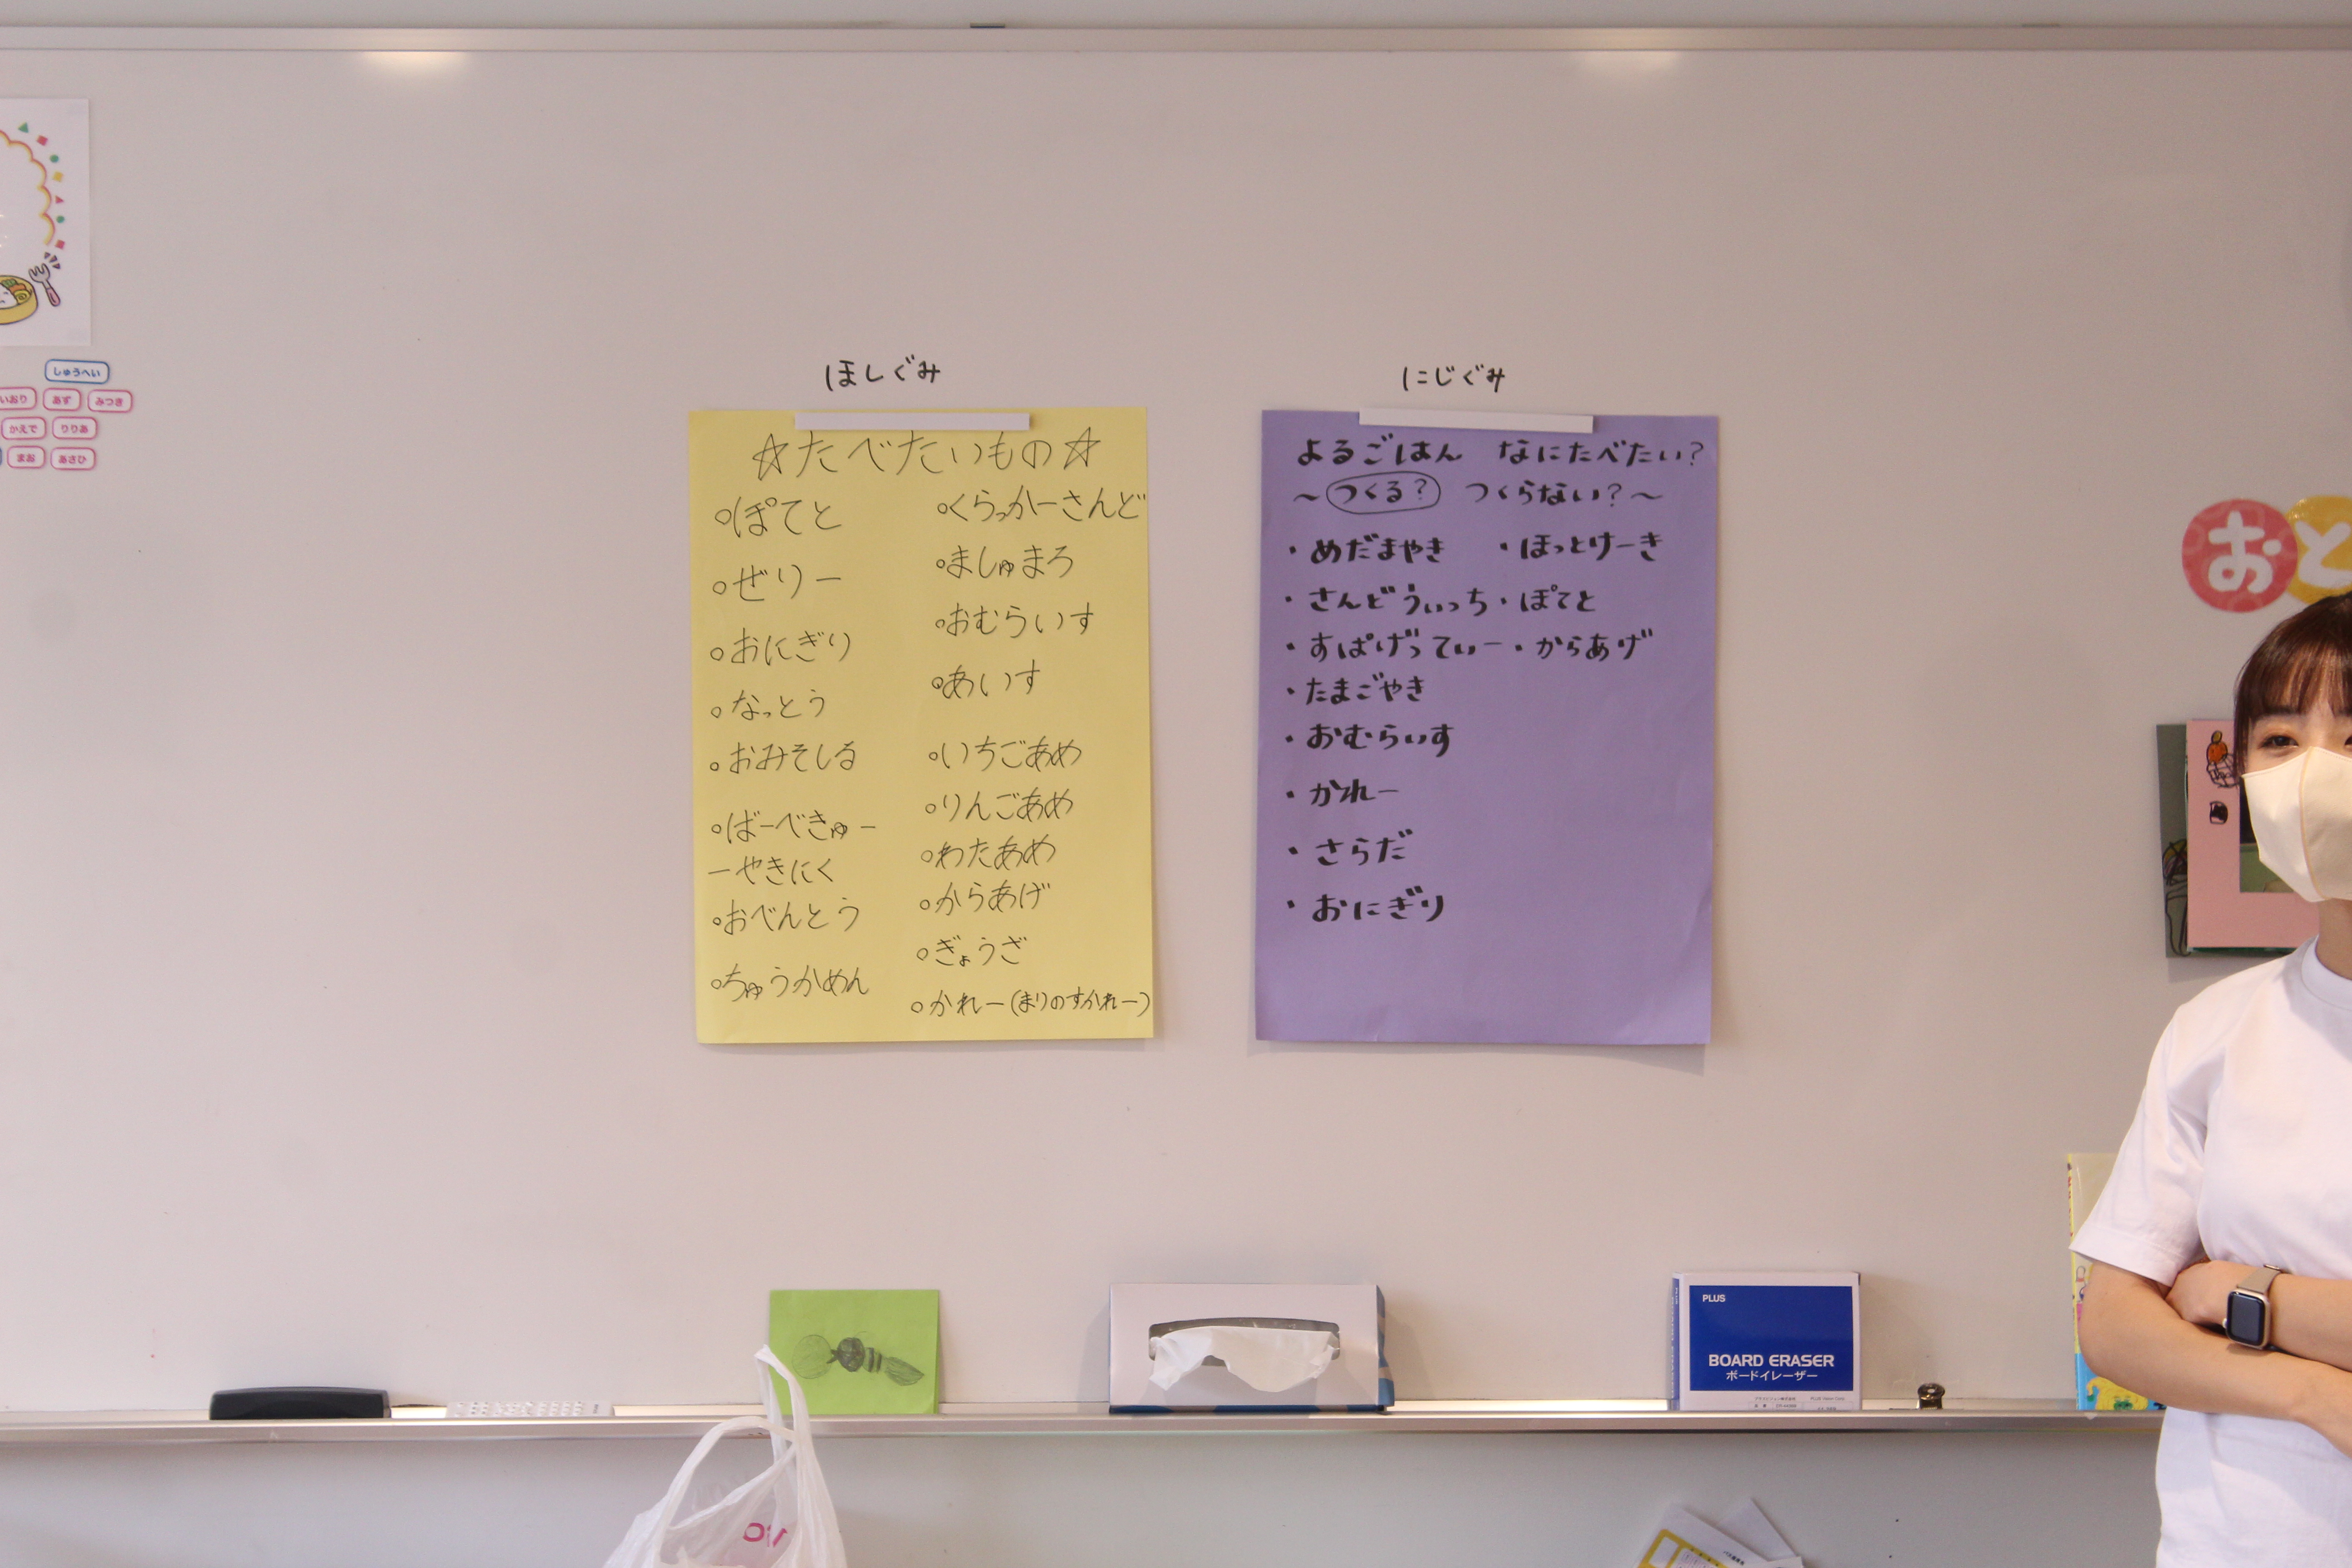 しゅうへい
いおり あず みつき
かえで りりあ
まお あさひ
ほしぐみ
☆たべたいもの☆
○ぽてと
○ぜりー
○おにぎり
○なっとう
○おみそしる
○ばーべきゅー
ーやきにく
○おべんとう
○ちゅうかめん
○くらっかーさんど
○ましゅまろ
○おむらいす
○あいす
○いちごあめ
○りんごあめ
○わたあめ
○からあげ
○ぎょうざ
○かれー(まりのすかれー)
にじぐみ
よるごはん なにたべたい?
～つくる? つくらない?～
・めだまやき ・ほっとけーき
・さんどうぃっち・ぽてと
・すぱげってぃー・からあげ
・たまごやき
・おむらいす
・かれー
・さらだ
・おにぎり
おと
PLUS
BOARD ERASER
ボードイレーザー